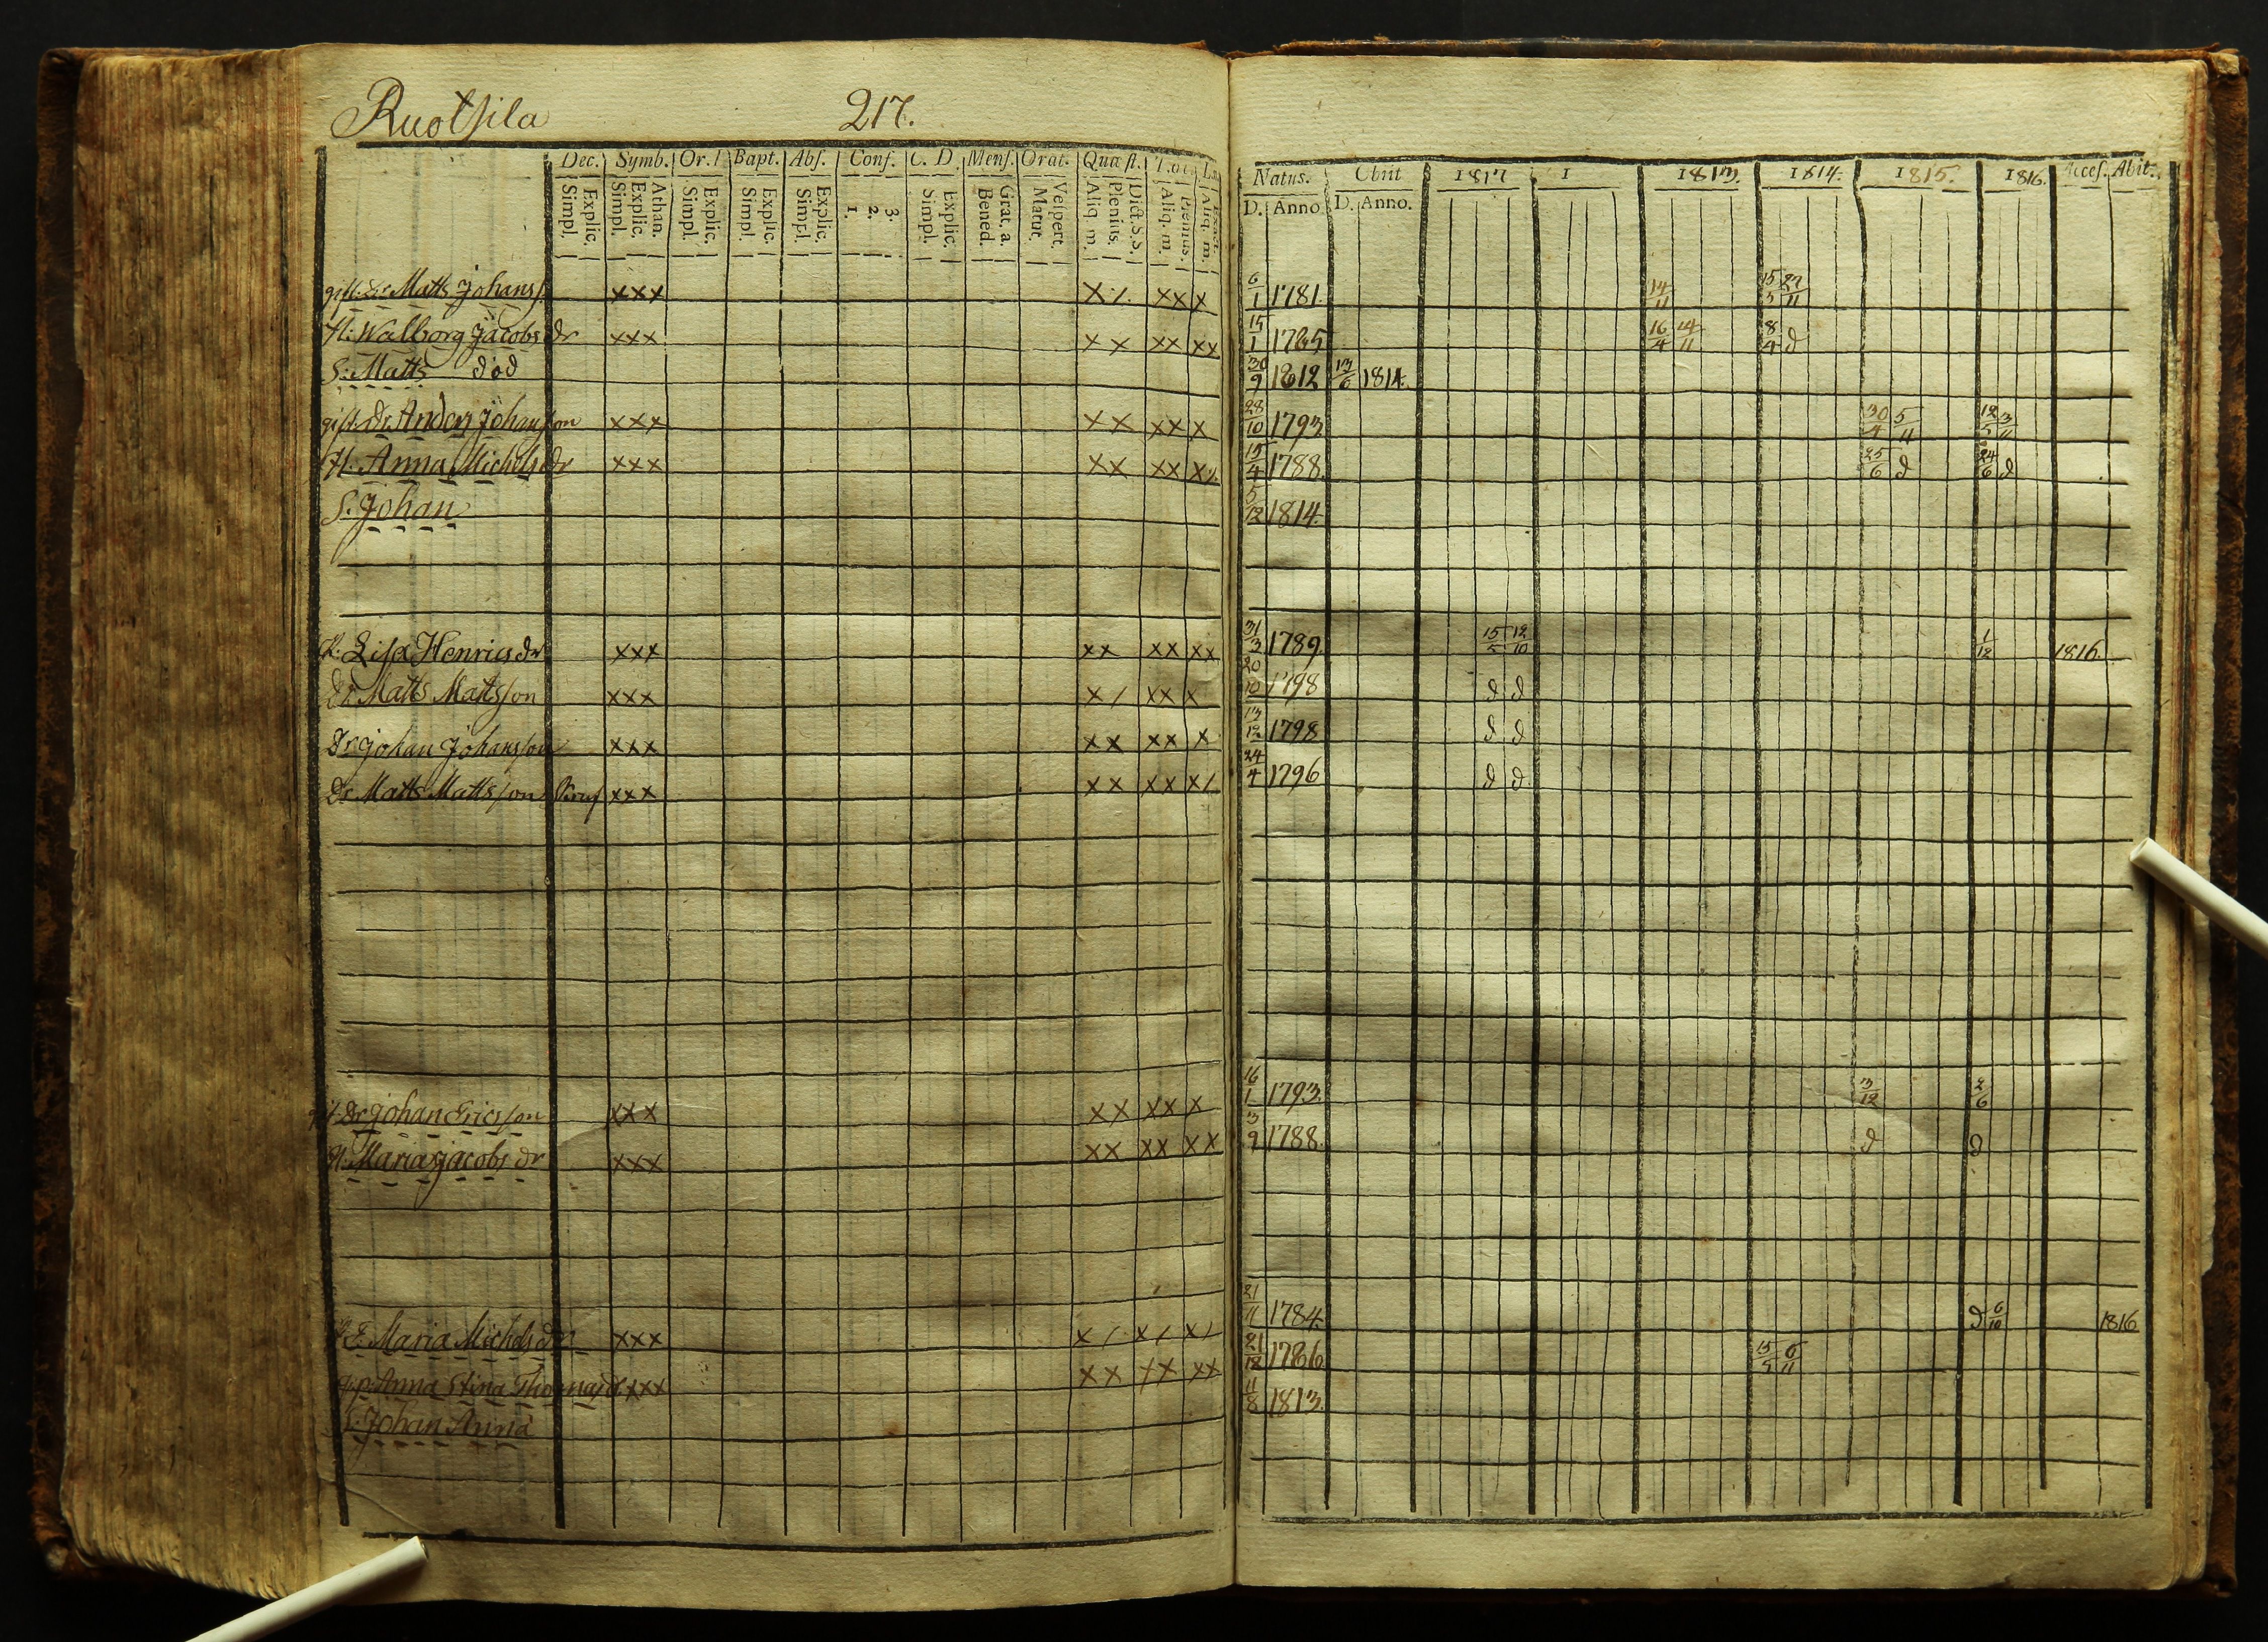 Ruotsila 217.
Dec. Symb. Or. Bapt. Abs. Conf. C. D. Mens. Orat. Quæst.
Simpl. Explic. Simpl. Explic. Athan. Simpl. Explic. Simpl. Explic. Simpl. Explic. 1. 2. 3. Simpl. Explic. Bened. Grat. a. Matut. Vespert. Aliq. m. Plenius. Dict. S.S. Aliq. m. Plenius. Aliq. m.
Natus. Obiit 1817 1 1813. 1814. 1815. 1816. Acces. Abit.
D. Anno D. Anno.
gift. Dr. Matts Johans xxx xx x 6/1 1781. 14/11 15/5 27/11
H: Walborg Jacobs dr xxx xx xx xx 15/1 1785 16/4 14/11 8/4 d
S: Matts död 30/9 1812 13/6 1814.
gift. Dr. Anders Johansson xxx xx xx x 28/10 1793. 30/4 5/11 12/5 3/11
H. Anna Michels dr xxx xx xx 15/4 1788. 25/6 d 24/6 d
S. Johan 5/12 1814.
Lisa Henrics dr xxx xx xx xx 31/3 1789. 15/5 12/10 1/12 1816
Dr Matts Mattsson xxx x / xx x 20/10 1798 d d
Dr Johan Johansson xxx xx xx x 13/12 1798 d d
Dr Matts Mattsson xxx xx xx x/ 24/4 1796 d d
Dr Johan Ericsson xxx xx xx x 16/1 1793. 3/12 2/6
H: Maria Jacobs dr xxx xx xx xx 3/9 1788. d d
Maria Michels dr xxx x / x / x / 21/11 1784. d 6/10 1816
Anna Stina Thomas d xxx xx xx xx 21/12 1786 15/5 6/11
Johan Anna 11/8 1813.